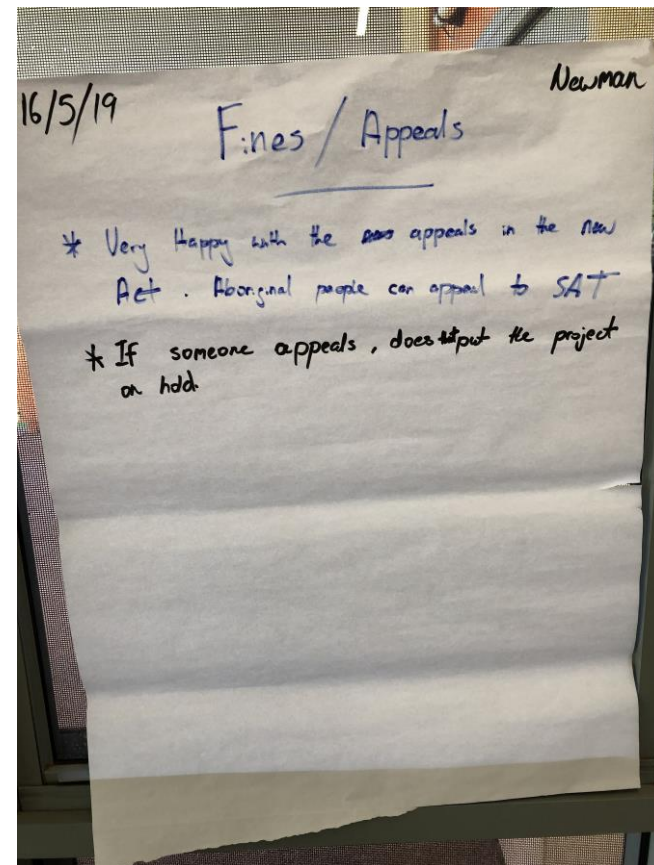 16/5/19
Newman
Fines / Appeals
* Very Happy with the appeals in the new
Act. Aboriginal people can appeal to SAT
* If someone appeals, does it put the project
on hold